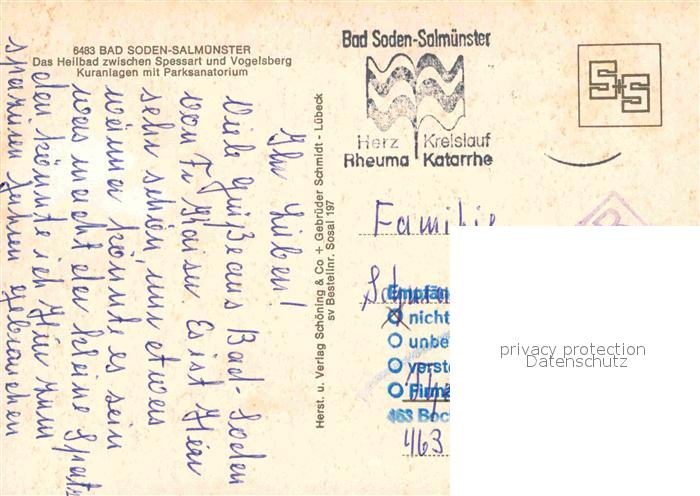 6483 BAD SODEN-SALMÜNSTER
Das Heilbad zwischen Spessart und Vogelsberg
Kuranlagen mit Parksanatorium
Ihr Lieben!
Viele Grüße aus Bad-Soden
von Fr Kaiser Es ist Hier
sehr schön, nur etwas
wärmer könnte es sein
was macht der kleine Spatz
den könnte ich Hier zum
spazieren fahren gebrauchen
Herst. u. Verlag Schöning & Co + Gebrüder Schmidt - Lübeck
sv Bestellnr. Sosal 197
Bad Soden-Salmünster
Herz Kreislauf
Rheuma Katarrhe
S+S
Familie
Empfän
nicht
unbe
verst
Firma
463 Boc
463
privacy protection
Datenschutz